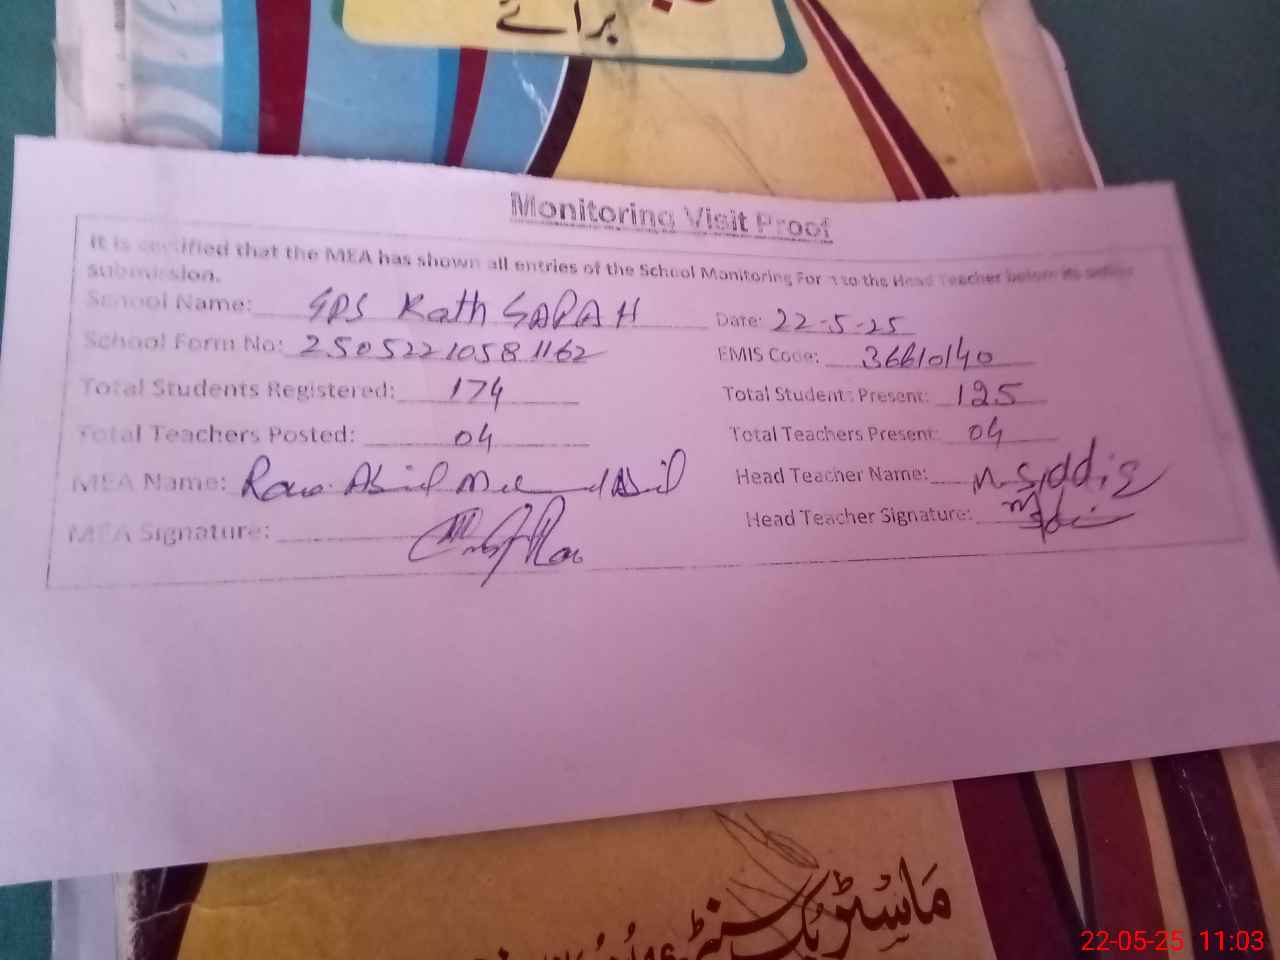 برائے
Monitoring Visit Proof
It is certified that the MEA has shown all entries of the School Monitoring Form to the Head Teacher before its online
submission.
School Name: GPS Kath GARAH Date: 22-5-25
School Form No: 2505221058 1162 EMIS Code: 36610140
Total Students Registered: 174 Total Students Present: 125
Total Teachers Posted: 04 Total Teachers Present: 04
MEA Name: Rao Abid Head Teacher Name: M. Siddiq
MEA Signature: Head Teacher Signature:
ماسٹر
22-05-25 11:03